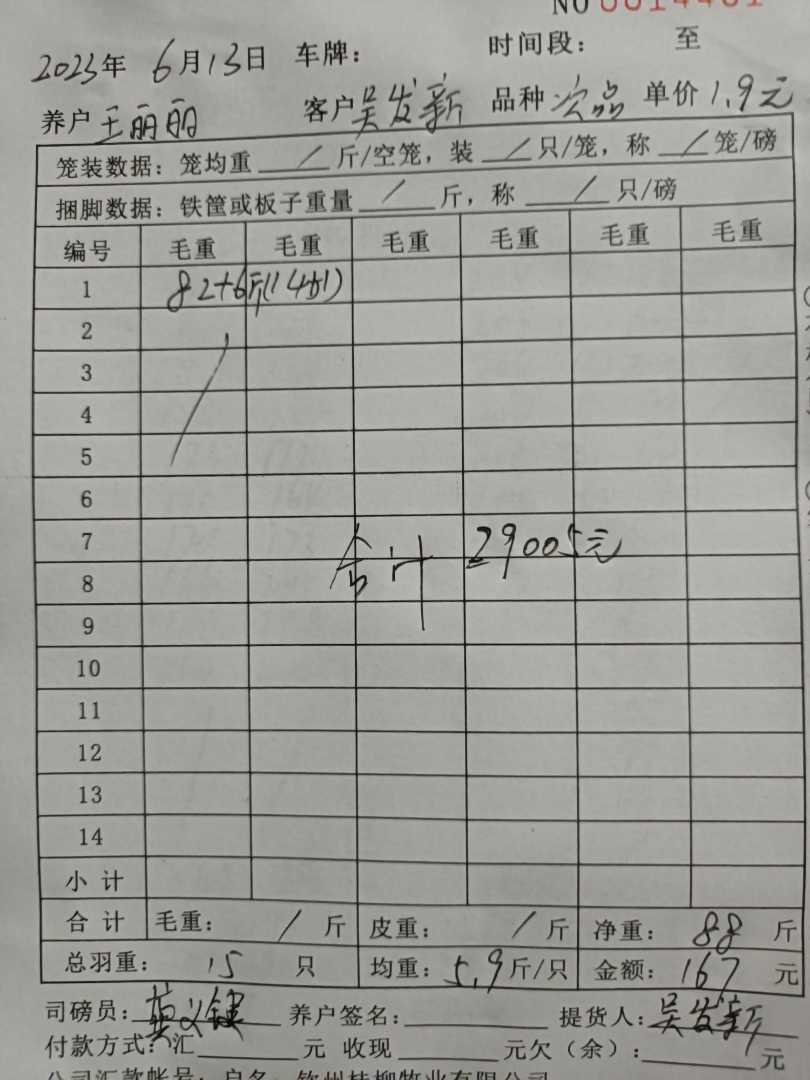 NO 0014461
2023年 6月13日 车牌： 时间段： 至
养户 王丽丽 客户 吴发新 品种 次品 单价 1.9元
笼装数据：笼均重 / 斤/空笼，装 / 只/笼，称 / 笼/磅
捆脚数据：铁筐或板子重量 / 斤，称 / 只/磅
编号 毛重 毛重 毛重 毛重 毛重 毛重
1 82+6斤(1只)
2
3
4
5
6
7
合计 29005元
8
9
10
11
12
13
14
小计
合计 毛重： / 斤 皮重： / 斤 净重： 88 斤
总羽重： 15 只 均重：5.9斤/只 金额：167 元
司磅员： 养户签名： 提货人：吴发新
付款方式：汇 元 收现 元欠（余）： 元
公司汇款帐号：户名：钦州桂柳牧业有限公司